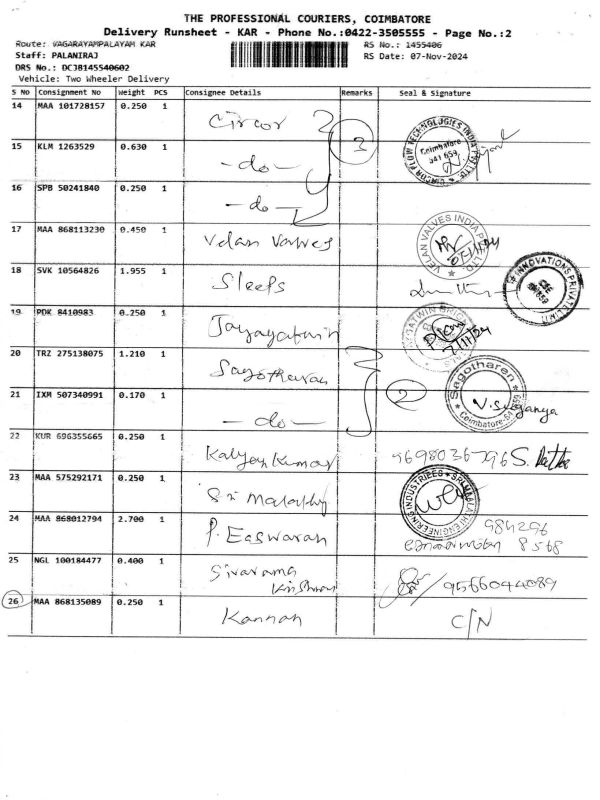 THE PROFESSIONAL COURIERS, COIMBATORE
Delivery Runsheet - KAR - Phone No.:0422-3505555 - Page No.:2
Route: VAGARAYAMPALAYAM KAR
RS No.: 1455406
Staff: PALANIRAJ
RS Date: 07-Nov-2024
DRS No.: DCJB145540602
Vehicle: Two Wheeler Delivery
S No Consignment No Weight PCS Consignee Details Remarks Seal & Signature
14 MAA 101728157 0.250 1 Circor
15 KLM 1263529 0.630 1 -do- 3 Coimbatore 641 659
16 SPB 50241840 0.250 1 -do-
17 MAA 868113230 0.450 1 Velan Valves VELAN VALVES INDIA
18 SVK 10564826 1.955 1 Sleefs INNOVATIONS PRIVATE LIMITED
19 PDK 8410983 0.250 1 7/11/24
20 TRZ 275138075 1.210 1 Sagotharan Sagotharen
21 IXM 507340991 0.170 1 -do- 2 Coimbatore-641 659
22 KUR 696355665 0.250 1 Kalyan Kumar 9698036796
23 MAA 575292171 0.250 1 Sri Malathy ENGINEERING INDUSTRIES
24 MAA 868012794 2.700 1 P. Easwaran
25 NGL 100184477 0.400 1 Sivarama Krishnan 9566044089
26 MAA 868135089 0.250 1 Kannan C/N